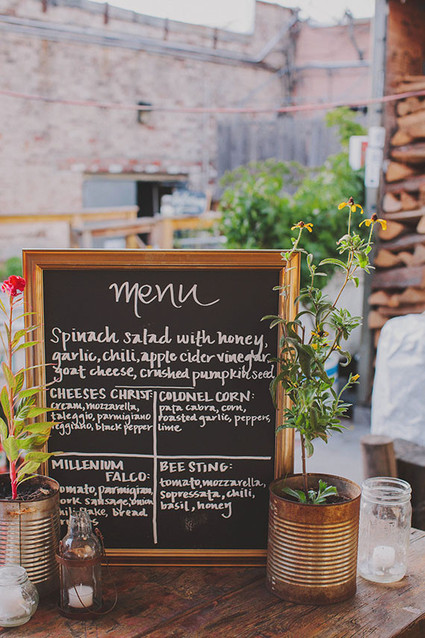 menu
Spinach salad with honey,
garlic, chili, apple cider vinegar,
goat cheese, crushed pumpkin seed
CHEESES CHRIST:
cream, mozzarella,
taleggio, parmigiano
reggiano, black pepper
COLONEL CORN:
pata cabra, corn,
roasted garlic, peppers,
lime
MILLENIUM
FALCO:
tomato, parmigian,
pork sausage,
bread
BEE STING:
tomato, mozzarella,
sopressata, chili,
basil, honey